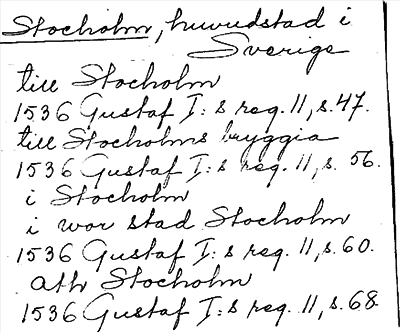 Stocholm, huvudstad i
Sverige
till Stocholm
1536 Gustaf I:s reg. 11, s. 47.
till Stocholms bryggia
1536 Gustaf I:s reg. 11, s. 56.
i Stocholm
i wor stad Stocholm
1536 Gustaf I:s reg. 11, s. 60.
ath Stocholm
1536 Gustaf I:s reg. 11, s. 68.